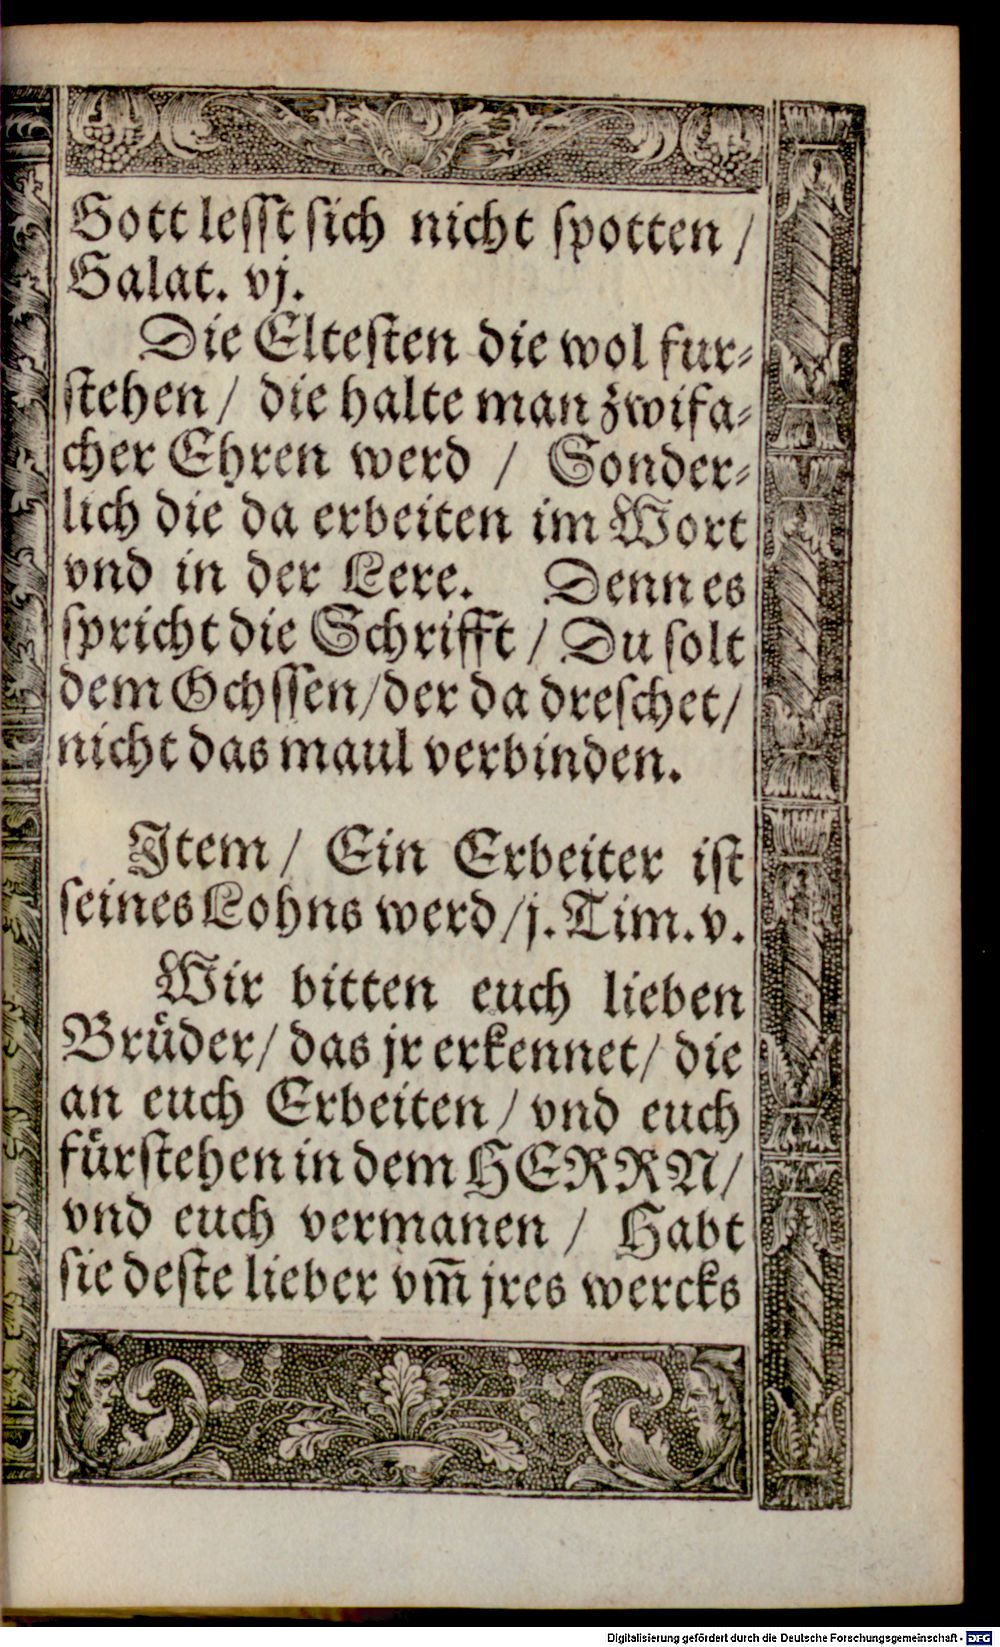 Gott lesſt ſich nicht ſpotten /
Galat. vj.
Die Elteſten die wol fur⸗
ſtehen / die halte man zwifa⸗
cher Ehren werd / Sonder⸗
lich die da erbeiten im Wort
vnd in der Lere. Denn es
ſpricht die Schrifft / Du ſolt
dem Ochſſen / der da dreſchet /
nicht das maul verbinden.
Item / Ein Erbeiter iſt
ſeines Lohns werd / j. Tim. v.
Wir bitten euch lieben
Bruͤder / das jr erkennet / die
an euch Erbeiten / vnd euch
fuͤrſtehen in dem HERRN /
vnd euch vermanen / Habt
ſie deſte lieber vm̄ jres wercks
Digitalisierung gefördert durch die Deutsche Forschungsgemeinschaft - DFG